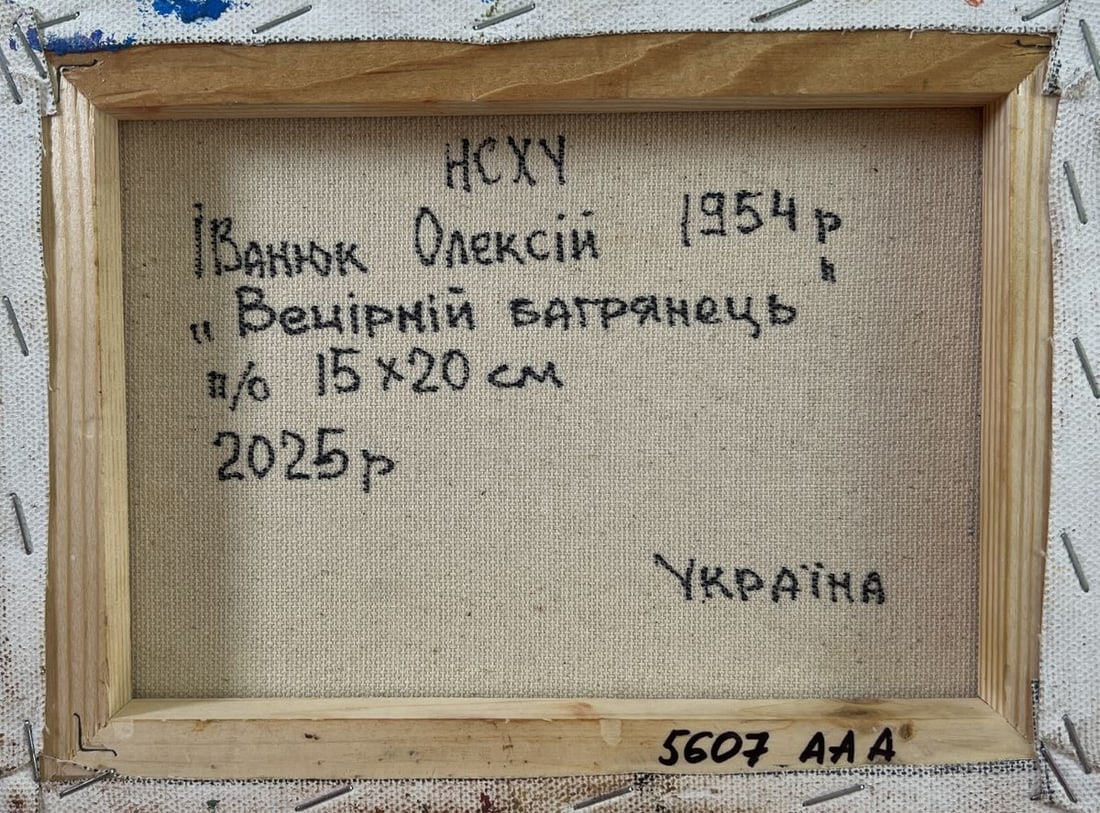 НСХУ
Іванюк Олексій 1954 р
„Вечірній багрянець"
п/о 15×20 см
2025р
Україна
5607 ААА